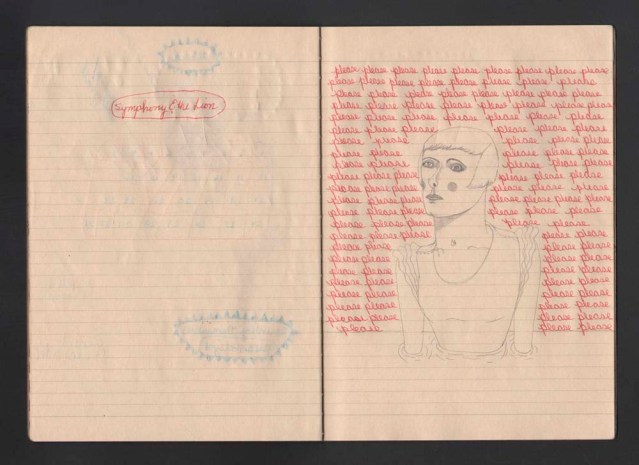 Symphony
please please please please please please please please please
please please please please please please please please
please please please please please please please please
please please please please please please please please please
please please please please please please please please
please please please please please please
please please please please please
please please please please please
please please please please please
please please please please please please
please please please please please please
please please please please please please please
please please please please please please
please please please please please
please please please please please
please please please please
please please please please
please please please please
please please please please
please please please please
please please please please
please please please please
please please please